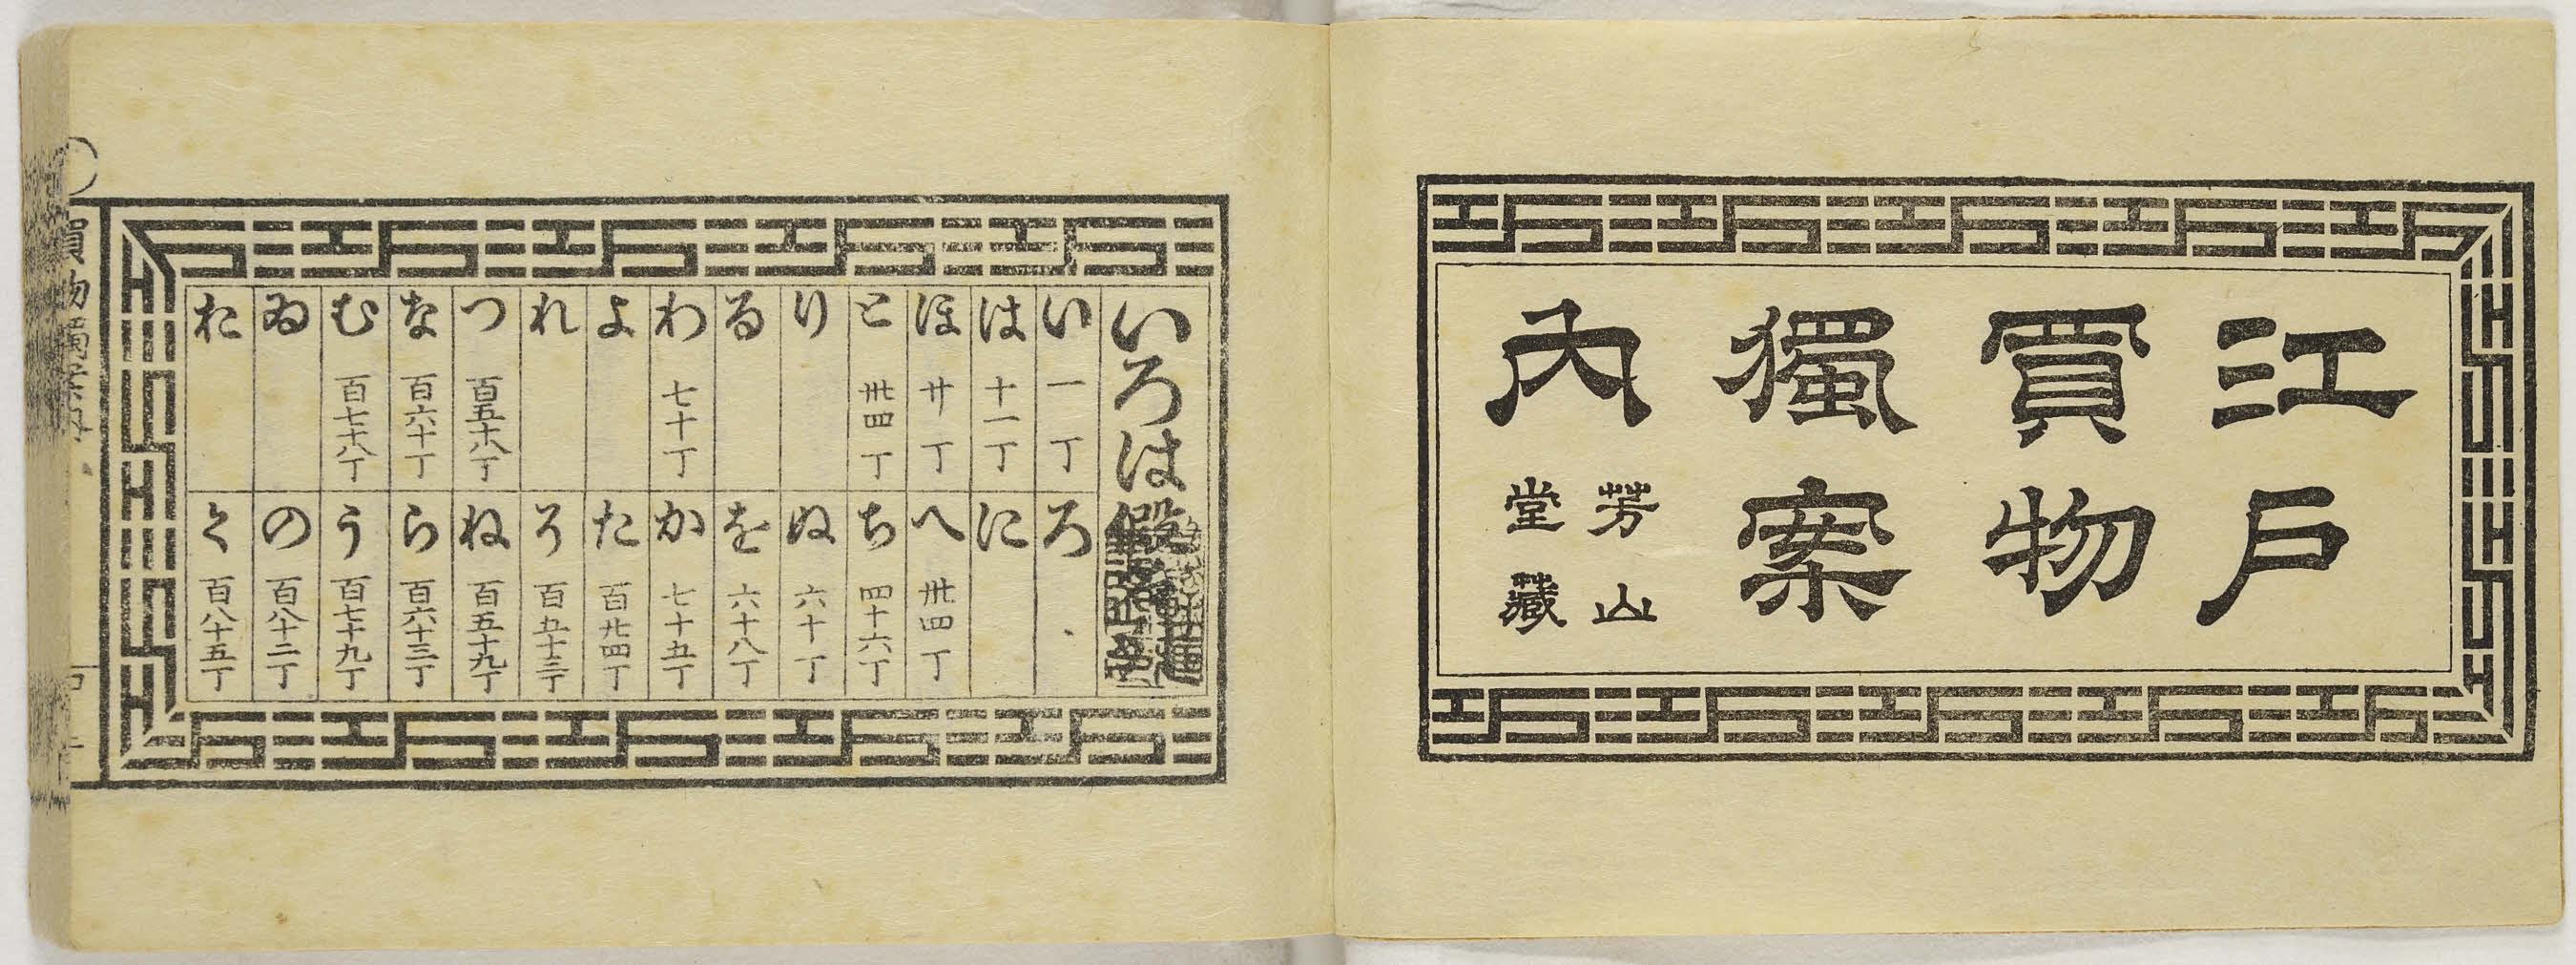 江戸
買物
獨案
內
芳山
堂藏
いろは
い 一丁
ろ
は 十一丁
に
ほ 廿丁
へ 丗四丁
と 丗四丁
ち 四十六丁
り
ぬ 六十丁
る
を 六十八丁
わ 七十丁
か 七十五丁
よ
た 百廿四丁
れ
そ 百五十三丁
つ 百五十八丁
ね 百五十九丁
な 百六十丁
ら 百六十三丁
む 百七十八丁
う 百七十九丁
ゐ
の 百八十二丁
お
く 百八十五丁
買物獨案內